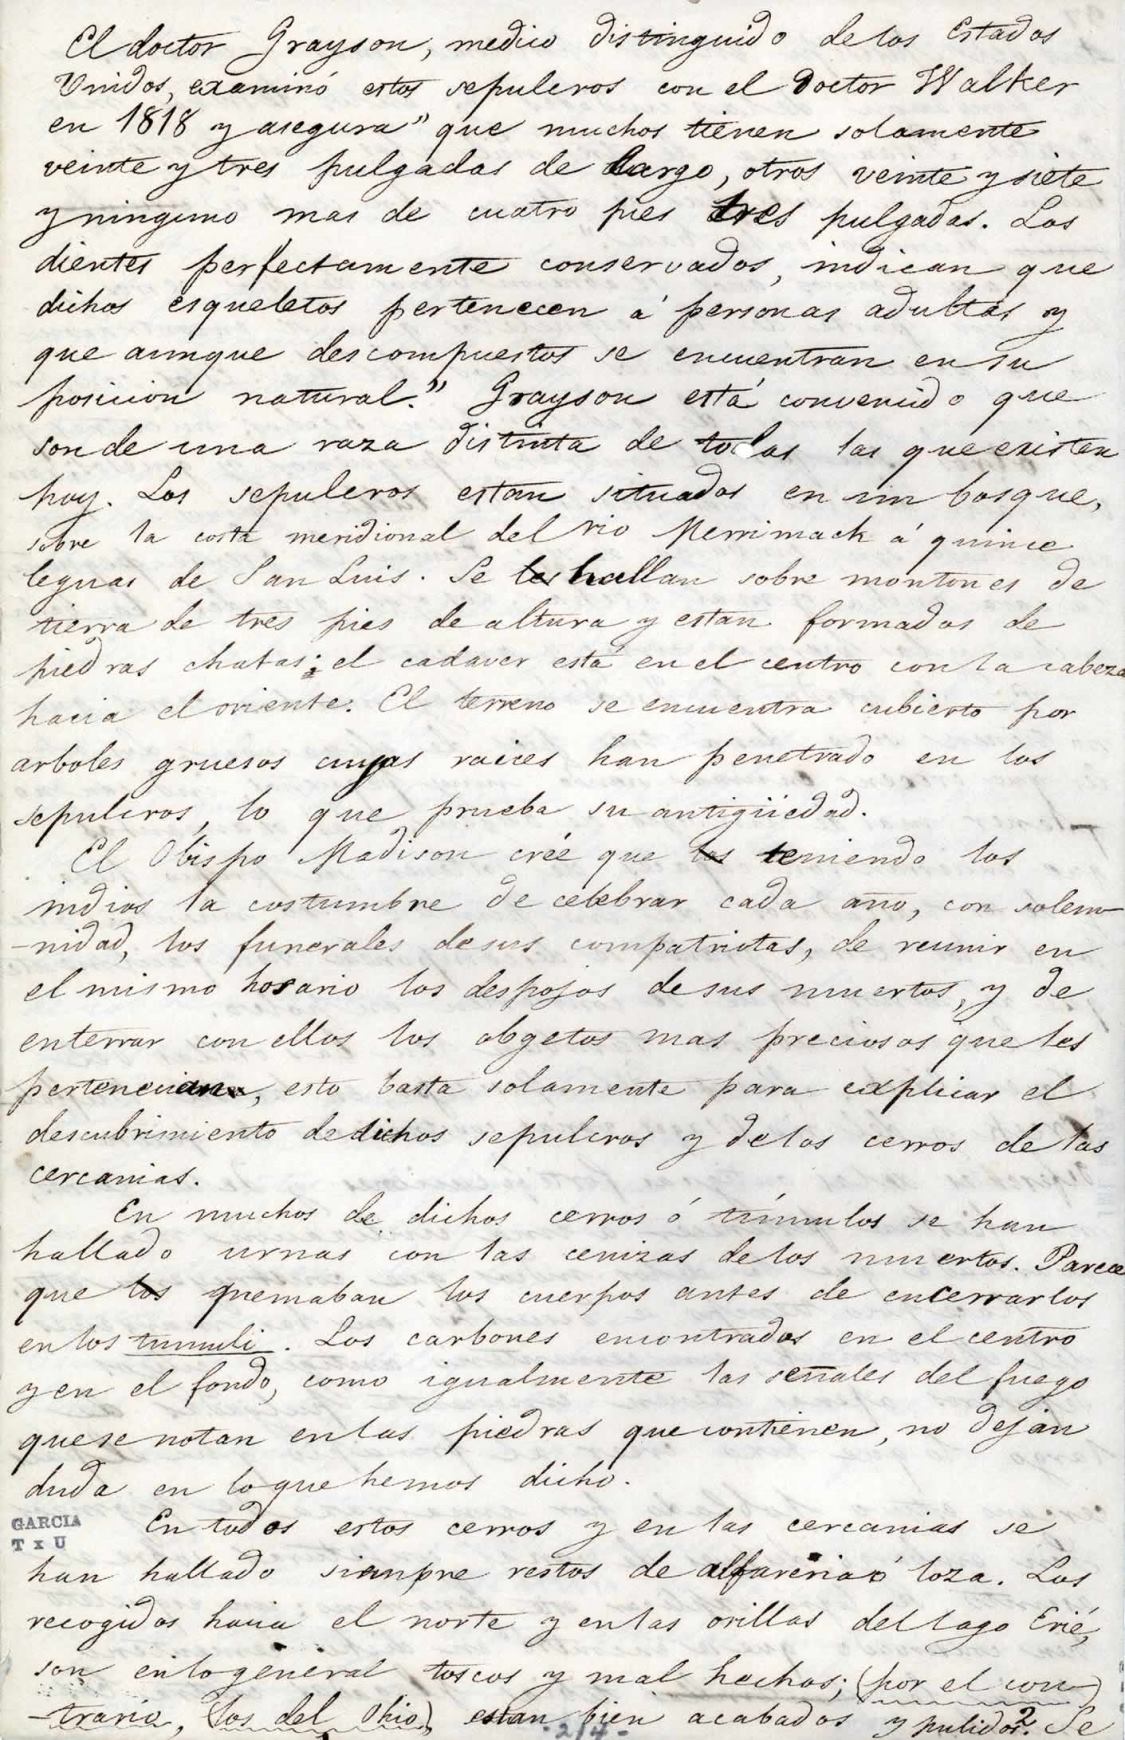 El doctor Grayson, medico distinguido de los Estados
Unidos, examinó estos sepulcros con el Doctor Walker
en 1818 y asegura "que muchos tienen solamente
veinte y tres pulgadas de largo, otros veinte y siete
y ninguno mas de cuatro pies tres pulgadas. Los
dientes perfectamente conservados, indican que
dichos esqueletos pertenecen á personas adultas y
que aunque descompuestos se encuentran en su
posicion natural." Grayson está convencido que
son de una raza distinta de todas las que existen
hoy. Los sepulcros estan situados en un bosque,
sobre la costa meridional del rio Merrimack á quince
leguas de San Luis. Se les hallan sobre montones de
tierra de tres pies de altura y estan formados de
piedras chatas; el cadaver está en el centro con la cabeza
hacia el oriente. El terreno se encuentra cubierto por
arboles gruesos cuyas raices han penetrado en los
sepulcros, lo que prueba su antigüedad.
El Obispo Madison créé que los teniendo los
indios la costumbre de celebrar cada año, con solem-
-nidad, los funerales de sus compatriotas, de reunir en
el mismo hosario los despojos de sus muertos, y de
enterrar con ellos los obgetos mas preciosos que les
pertenecian, esto basta solamente para explicar el
descubrimiento de dichos sepulcros y de los cerros de las
cercanias.
En muchos de dichos cerros ó túmulos se han
hallado urnas con las cenizas de los muertos. Parece
que los quemaban los cuerpos antes de encerrarlos
en los tumuli. Los carbones encontrados en el centro
y en el fondo, como igualmente las señales del fuego
que se notan en las piedras que contienen, no dejan
duda en lo que hemos dicho.
GARCIA
T x U
En todos estos cerros y en las cercanias se
han hallado siempre restos de alfareria ó loza. Los
recogidos hacia el norte y en las orillas del lago Erié,
son en lo general toscos y mal hechos; (por el con-)
-trario, (los del Ohio), estan bien acabados y pulidos.2 Se
-214-